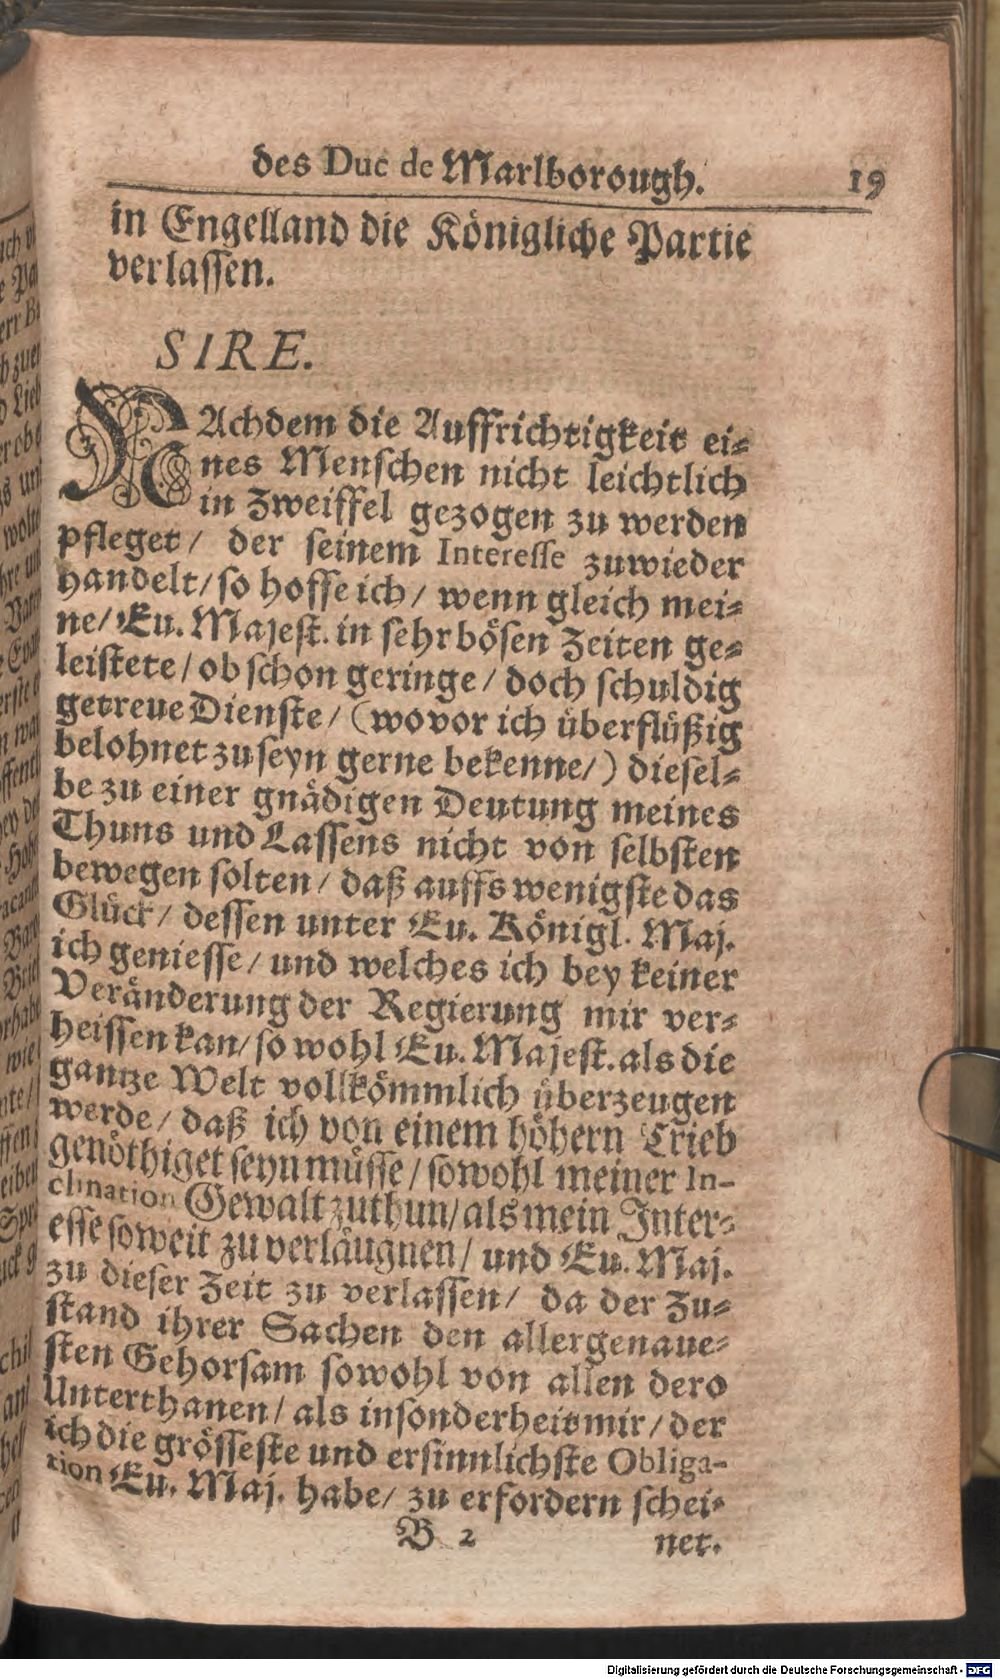 des Duc de Marlborough. 19
in Engelland die Königliche Partie
verlassen.
SIRE.
NAchdem die Auffrichtigkeit ei-
nes Menschen nicht leichtlich
in Zweiffel gezogen zu werden
pfleget / der seinem Interesse zuwieder
handelt / so hoffe ich / wenn gleich mei-
ne / Eu. Majest. in sehr bösen Zeiten ge-
leistete / ob schon geringe / doch schuldig
getreue Dienste / (wovor ich überflüßig
belohnet zu seyn gerne bekenne /) diesel-
be zu einer gnädigen Deutung meines
Thuns und Lassens nicht von selbsten
bewegen solten / daß auffs wenigste das
Glück / dessen unter Eu. Königl. Maj.
ich geniesse / und welches ich bey keiner
Veränderung der Regierung mir ver-
heissen kan / so wohl Eu. Majest. als die
gantze Welt vollkömmlich überzeugen
werde / daß ich von einem höhern Trieb
genöthiget seyn müsse / sowohl meiner In-
clination Gewalt zuthun / als mein Inter-
esse soweit zu verläugnen / und Eu. Maj.
zu dieser Zeit zu verlassen / da der Zu-
stand ihrer Sachen den allergenaue-
sten Gehorsam sowohl von allen dero
Unterthanen / als insonderheit mir / der
ich die grösseste und ersinnlichste Obliga-
tion Eu. Maj. habe / zu erfordern schei-
B 2 net.
Digitalisierung gefördert durch die Deutsche Forschungsgemeinschaft - DFG